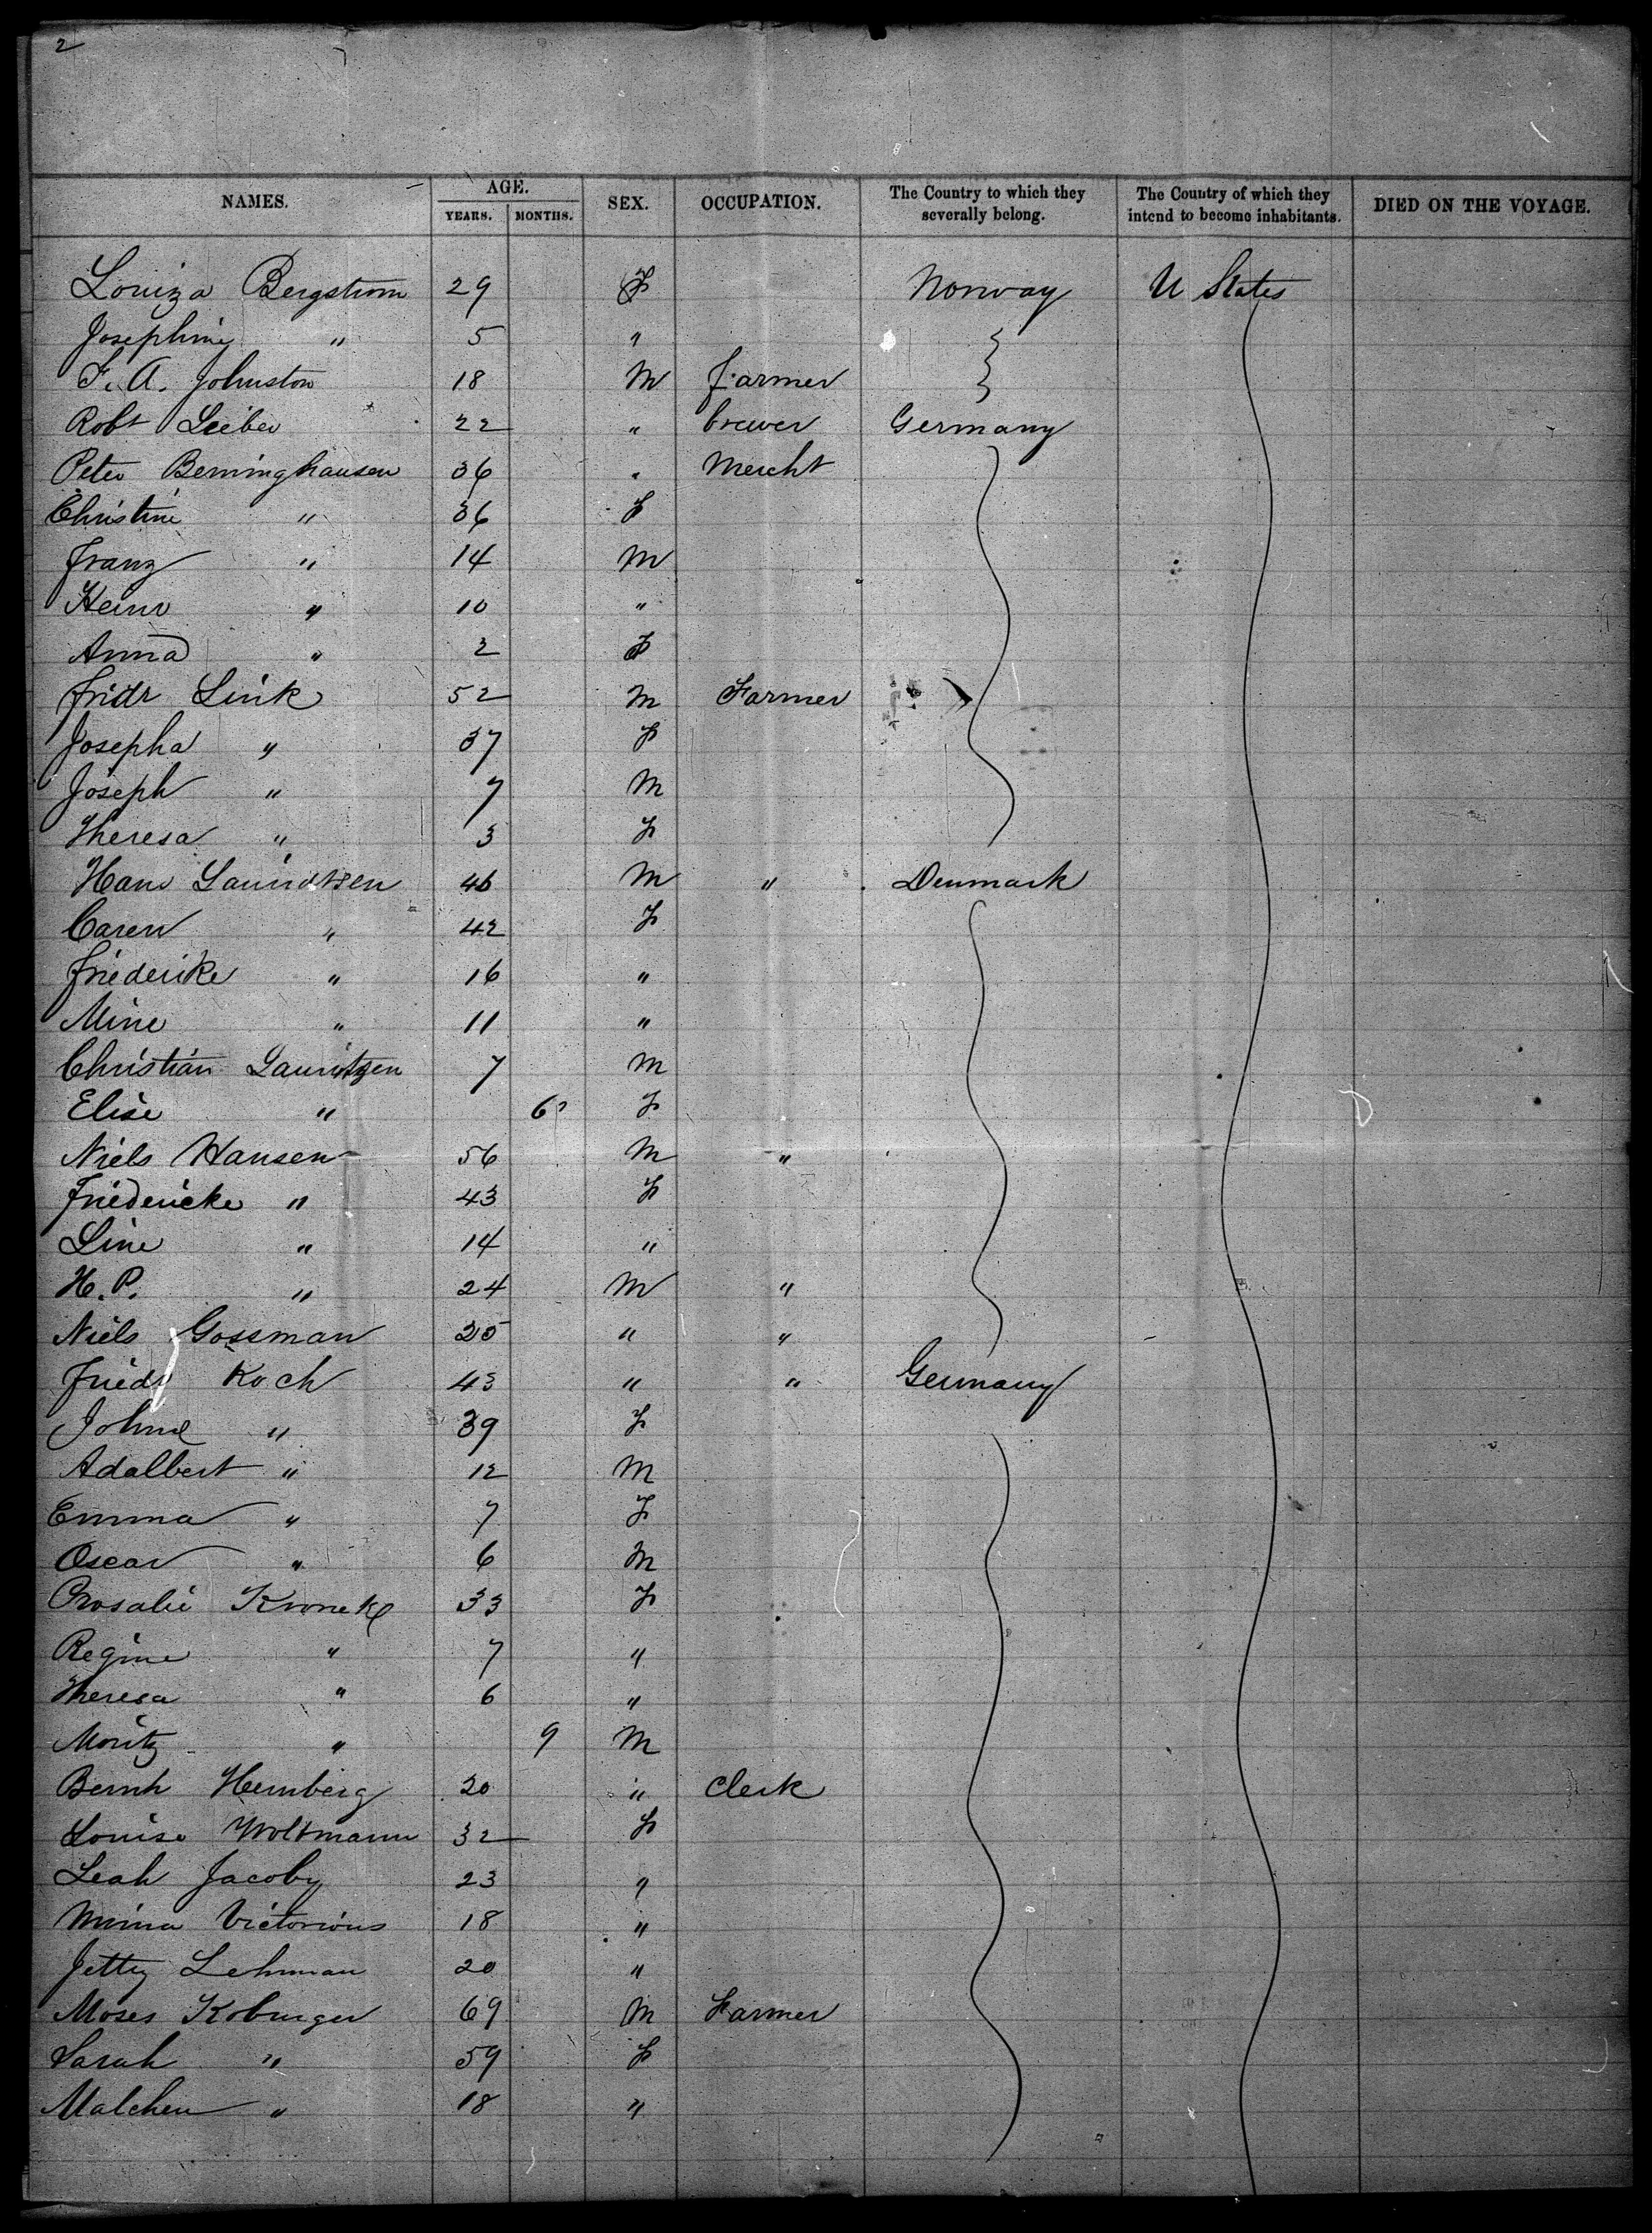 2
NAMES. AGE. YEARS. MONTHS. SEX. OCCUPATION. The Country to which they severally belong. The Country of which they intend to become inhabitants. DIED ON THE VOYAGE.
Louiza Bergstrom 29 F Norway U States
Josephine " 5 "
F. A. Johnston 18 M farmer
Robt Leiber 22 " brewer Germany
Peter Berninghausen 36 " Mercht
Christine " 36 F
Franz " 14 M
Heinr " 10 "
Anna " 2 F
Fridr Link 52 M Farmer
Josepha " 37 F
Joseph " 7 M
Theresa " 3 F
Hans Lauridtsen 46 M " Denmark
Caren " 42 F
Friederike " 16 "
Mine " 11 "
Christian Lauritzen 7 M
Elise " 6 F
Niels Hansen 56 M "
Friedericke " 43 F
Line " 14 "
H. P. " 24 M "
Niels Gossman 25 " "
Friedr Koch 43 " " Germany
Johne " 39 F
Adalbert " 12 M
Emma " 7 F
Oscar " 6 M
Rosalie Kroneke 33 F
Regine " 7 "
Theresa " 6 "
Moritz " 9 M
Bernh Hernberg 20 " Clerk
Louise Woltmann 32 F
Leah Jacoby 23 "
Minna Victorious 18 "
Jetty Lehman 20 "
Moses Koburger 69 M Farmer
Sarah " 59 F
Malchen " 18 "